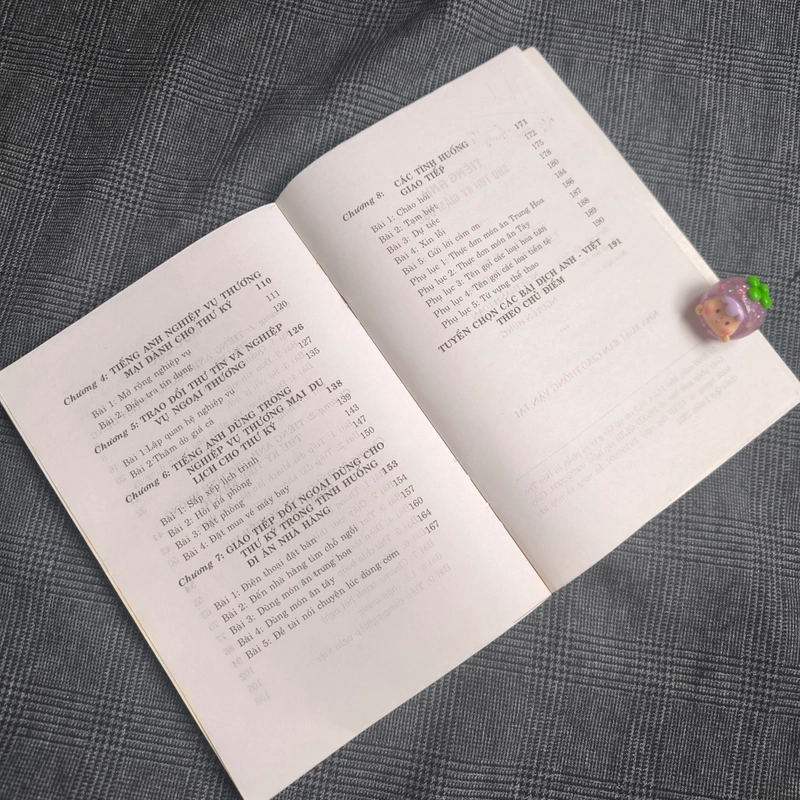 Chương 4: TIẾNG ANH NGHIỆP VỤ THƯƠNG
MẠI DÀNH CHO THƯ KÝ 110
Bài 1: Mở rộng nghiệp vụ 111
Bài 2: Điều tra tín dụng 120
Chương 5: TRAO ĐỔI THƯ TÍN VÀ NGHIỆP
VỤ NGOẠI THƯƠNG 126
Bài 1:Lập quan hệ nghiệp vụ 127
Bài 2:Thăm dò giá cả 135
Chương 6: TIẾNG ANH DÙNG TRONG
NGHIỆP VỤ THƯƠNG MẠI DU
LỊCH CHO THƯ KÝ 138
Bài 1: Sắp xếp lịch trình 139
Bài 2: Hỏi giá phòng 143
Bài 3: Đặt phòng 147
Bài 4: Đặt mua vé máy bay 150
Chương 7: GIAO TIẾP ĐỐI NGOẠI DÙNG CHO
THƯ KÝ TRONG TÌNH HUỐNG
ĐI ĂN NHÀ HÀNG 153
Bài 1: Điện thoại đặt bàn 154
Bài 2: Đến nhà hàng tìm chỗ ngồi 157
Bài 3: Dùng món ăn trung hoa 160
Bài 4: Dùng món ăn tây 164
Bài 5: Đề tài nói chuyện lúc dùng cơm 167
Chương 8: CÁC TÌNH HUỐNG
GIAO TIẾP 171
Bài 1: Chào hỏi 172
Bài 2: Tạm biệt 175
Bài 3: Dự tiệc 178
Bài 4: Xin lỗi 180
Bài 5: Gửi lời cảm ơn 184
Phụ lục 1: Thực đơn món ăn Trung Hoa 186
Phụ lục 2: Thực đơn món ăn Tây 187
Phụ lục 3: Tên gọi các loại hoa tươi 188
Phụ lục 4: Tên gọi các loại tiền tệ 189
Phụ lục 5: Từ vựng thể thao 190
TUYỂN CHỌN CÁC BÀI DỊCH ANH - VIỆT
THEO CHỦ ĐIỂM 191